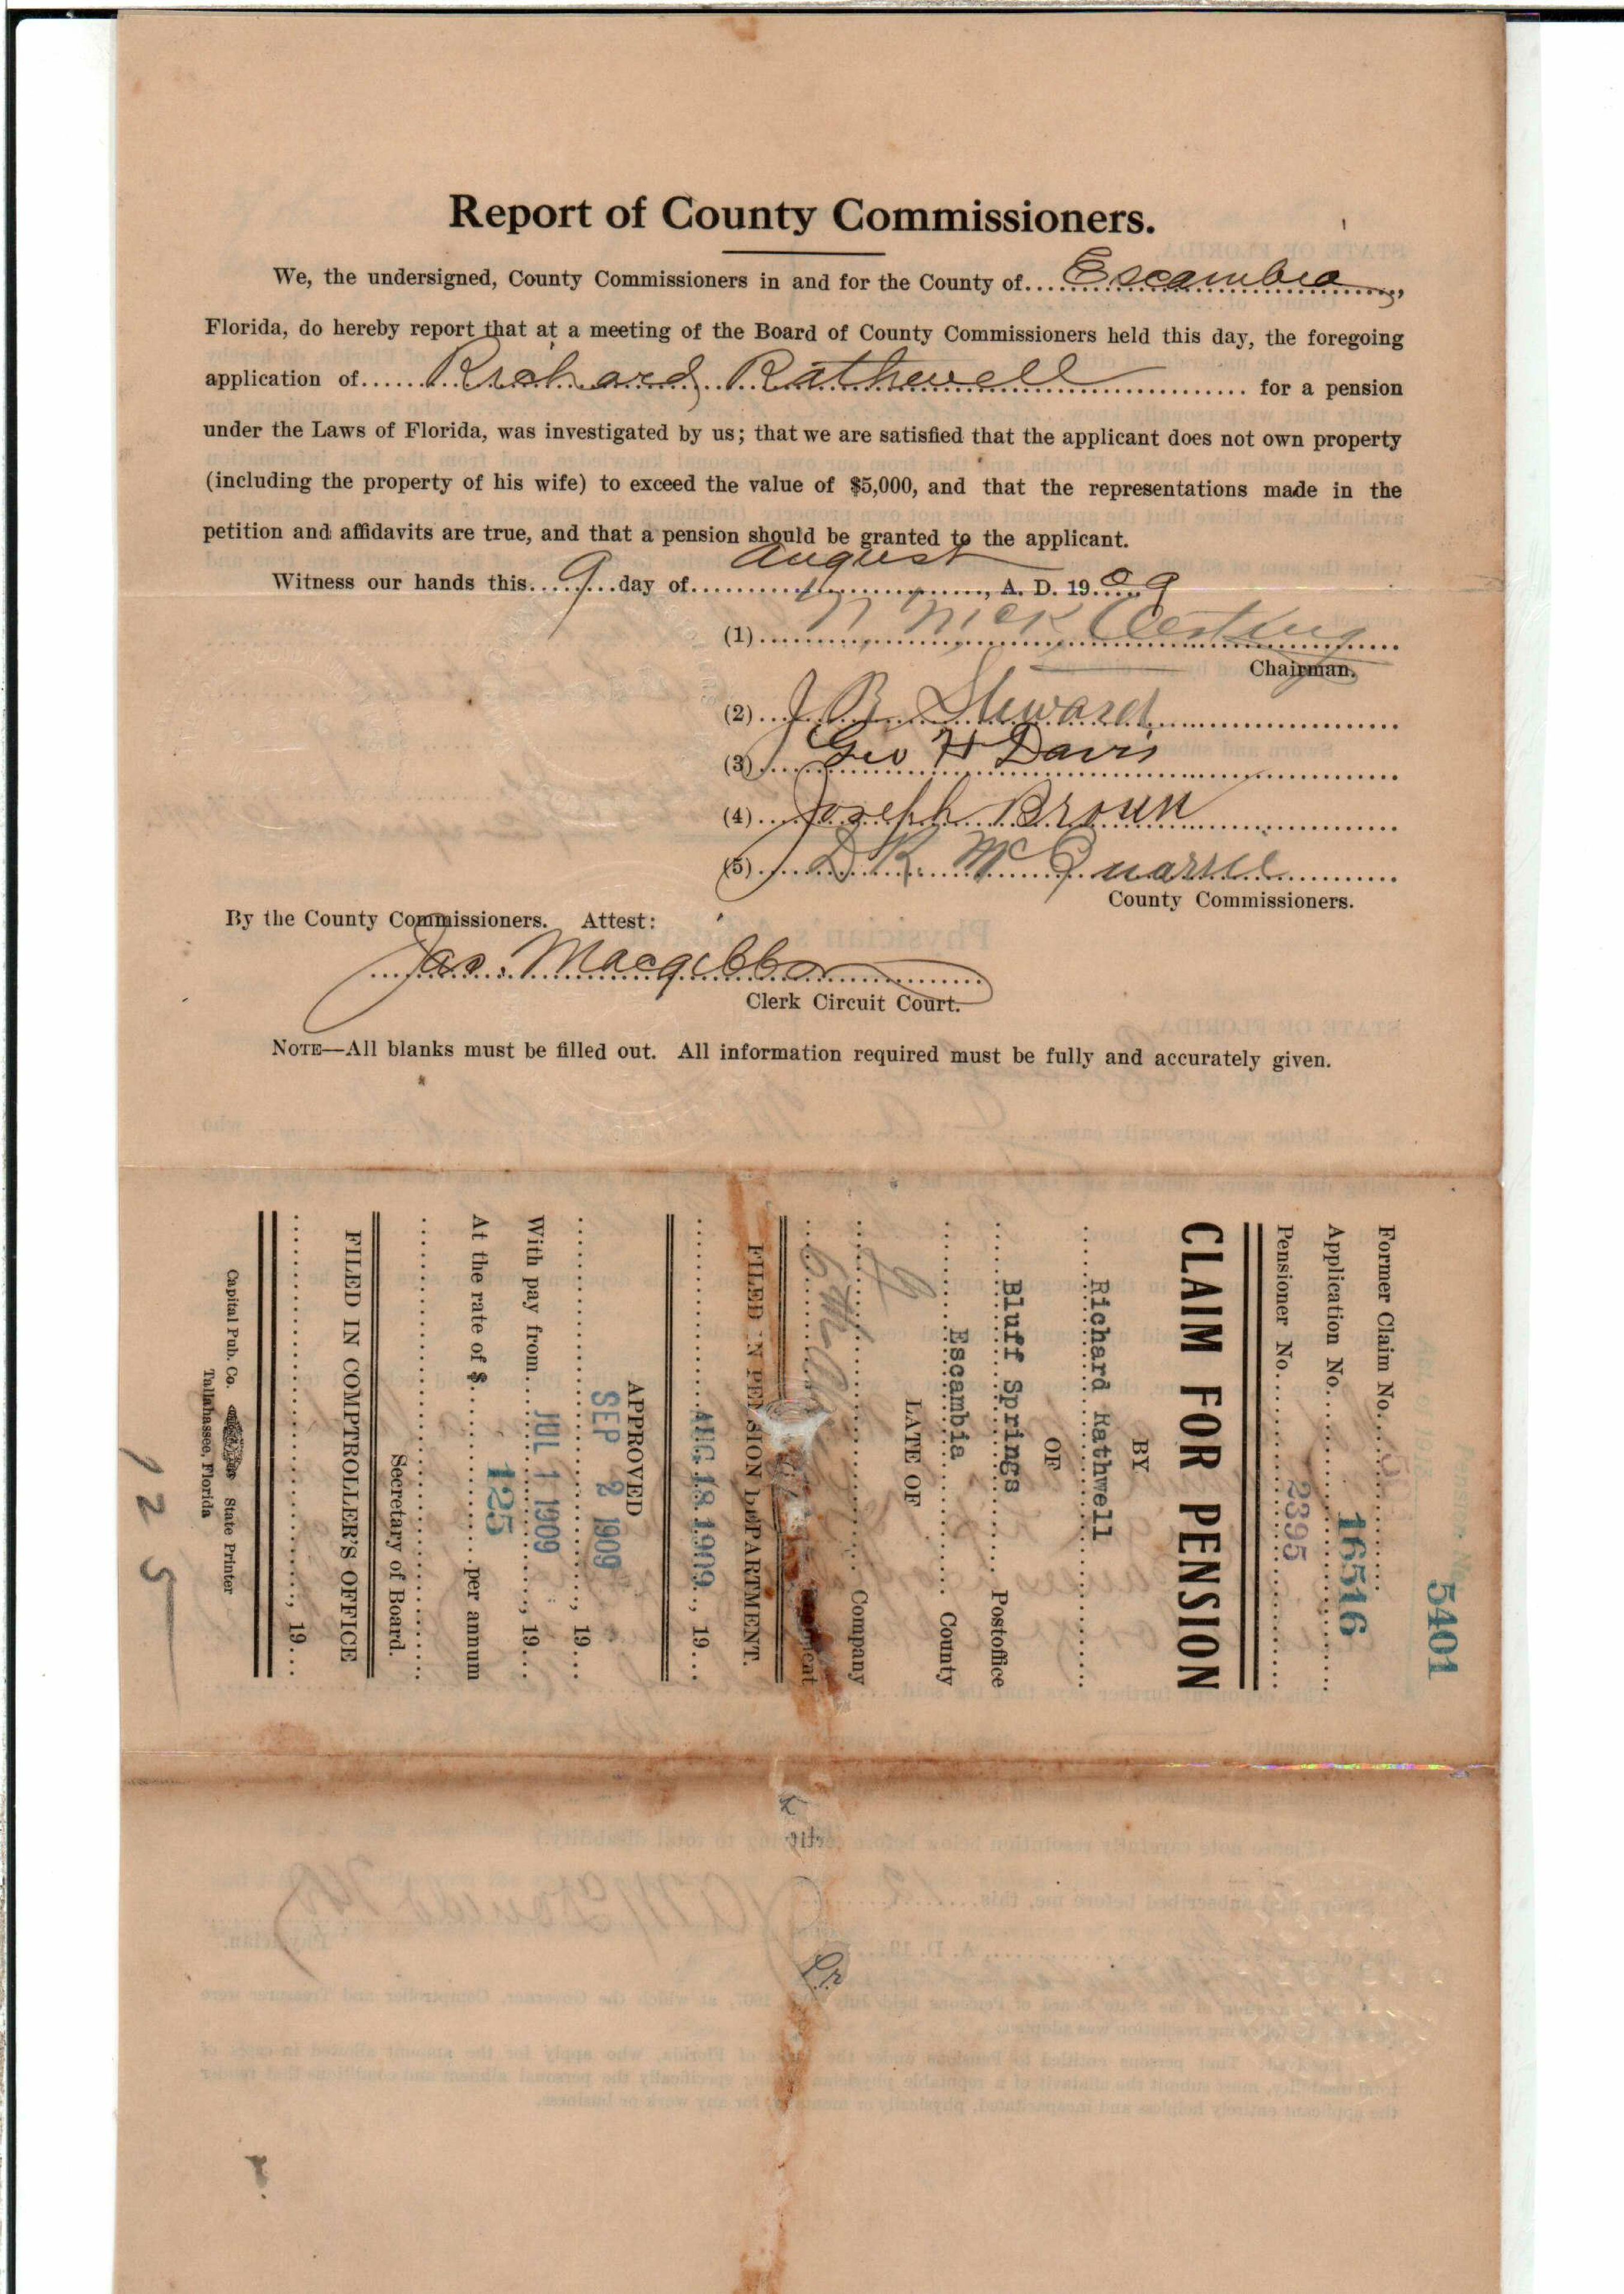 Report of County Commissioners.
We, the undersigned, County Commissioners in and for the County of....Escambia,
Florida, do hereby report that at a meeting of the Board of County Commissioners held this day, the foregoing
application of......Richard Rathewell............ for a pension
under the Laws of Florida, was investigated by us; that we are satisfied that the applicant does not own property
(including the property of his wife) to exceed the value of $5,000, and that the representations made in the
petition and affidavits are true, and that a pension should be granted to the applicant.
Witness our hands this....9....day of....August...., A. D. 19 09
(1)
Chairman.
(2) J B Steward
(3) Geo H Davis
(4) Joseph Brown
(5) D R. McQuarrie
County Commissioners.
By the County Commissioners. Attest:
Jas. Macgibbon
Clerk Circuit Court.
NOTE—All blanks must be filled out. All information required must be fully and accurately given.
5401
Former Claim No.
Application No. 16516
Pensioner No. 2395
CLAIM FOR PENSION
BY
Richard Rathwell
OF
Bluff Springs Postoffice
Escambia County
LATE OF
Company
6th
FILED IN PENSION DEPARTMENT.
AUG 18 1909, 19...
APPROVED
SEP 2 1909, 19...
With pay from JUL 1 1909, 19...
At the rate of $ 125 per annum
Secretary of Board.
FILED IN COMPTROLLER'S OFFICE
, 19...
Capital Pub. Co. State Printer
Tallahassee, Florida
125